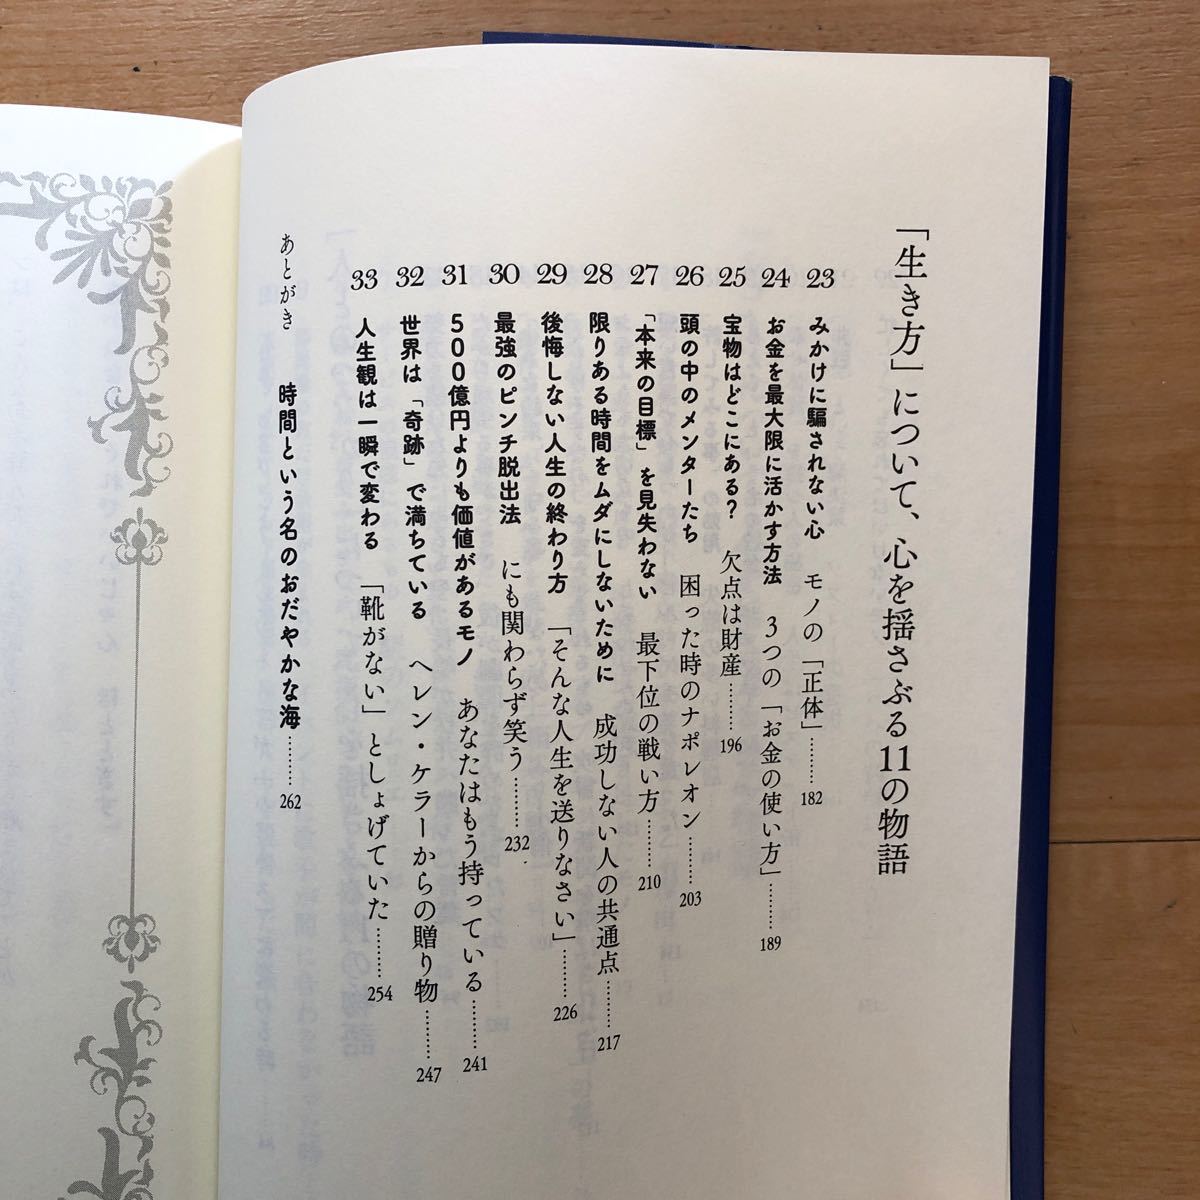 「生き方」について、心を揺さぶる11の物語
23 みかけに騙されない心 モノの「正体」………182
24 お金を最大限に活かす方法 3つの「お金の使い方」………189
25 宝物はどこにある？ 欠点は財産………196
26 頭の中のメンターたち 困った時のナポレオン………203
27 「本来の目標」を見失わない 最下位の戦い方………210
28 限りある時間をムダにしないために 成功しない人の共通点………217
29 後悔しない人生の終わり方 「そんな人生を送りなさい」………226
30 最強のピンチ脱出法 にも関わらず笑う………232
31 500億円よりも価値があるモノ あなたはもう持っている………241
32 世界は「奇跡」で満ちている ヘレン・ケラーからの贈り物………247
33 人生観は一瞬で変わる 「靴がない」としょげていた………254
あとがき 時間という名のおだやかな海………262